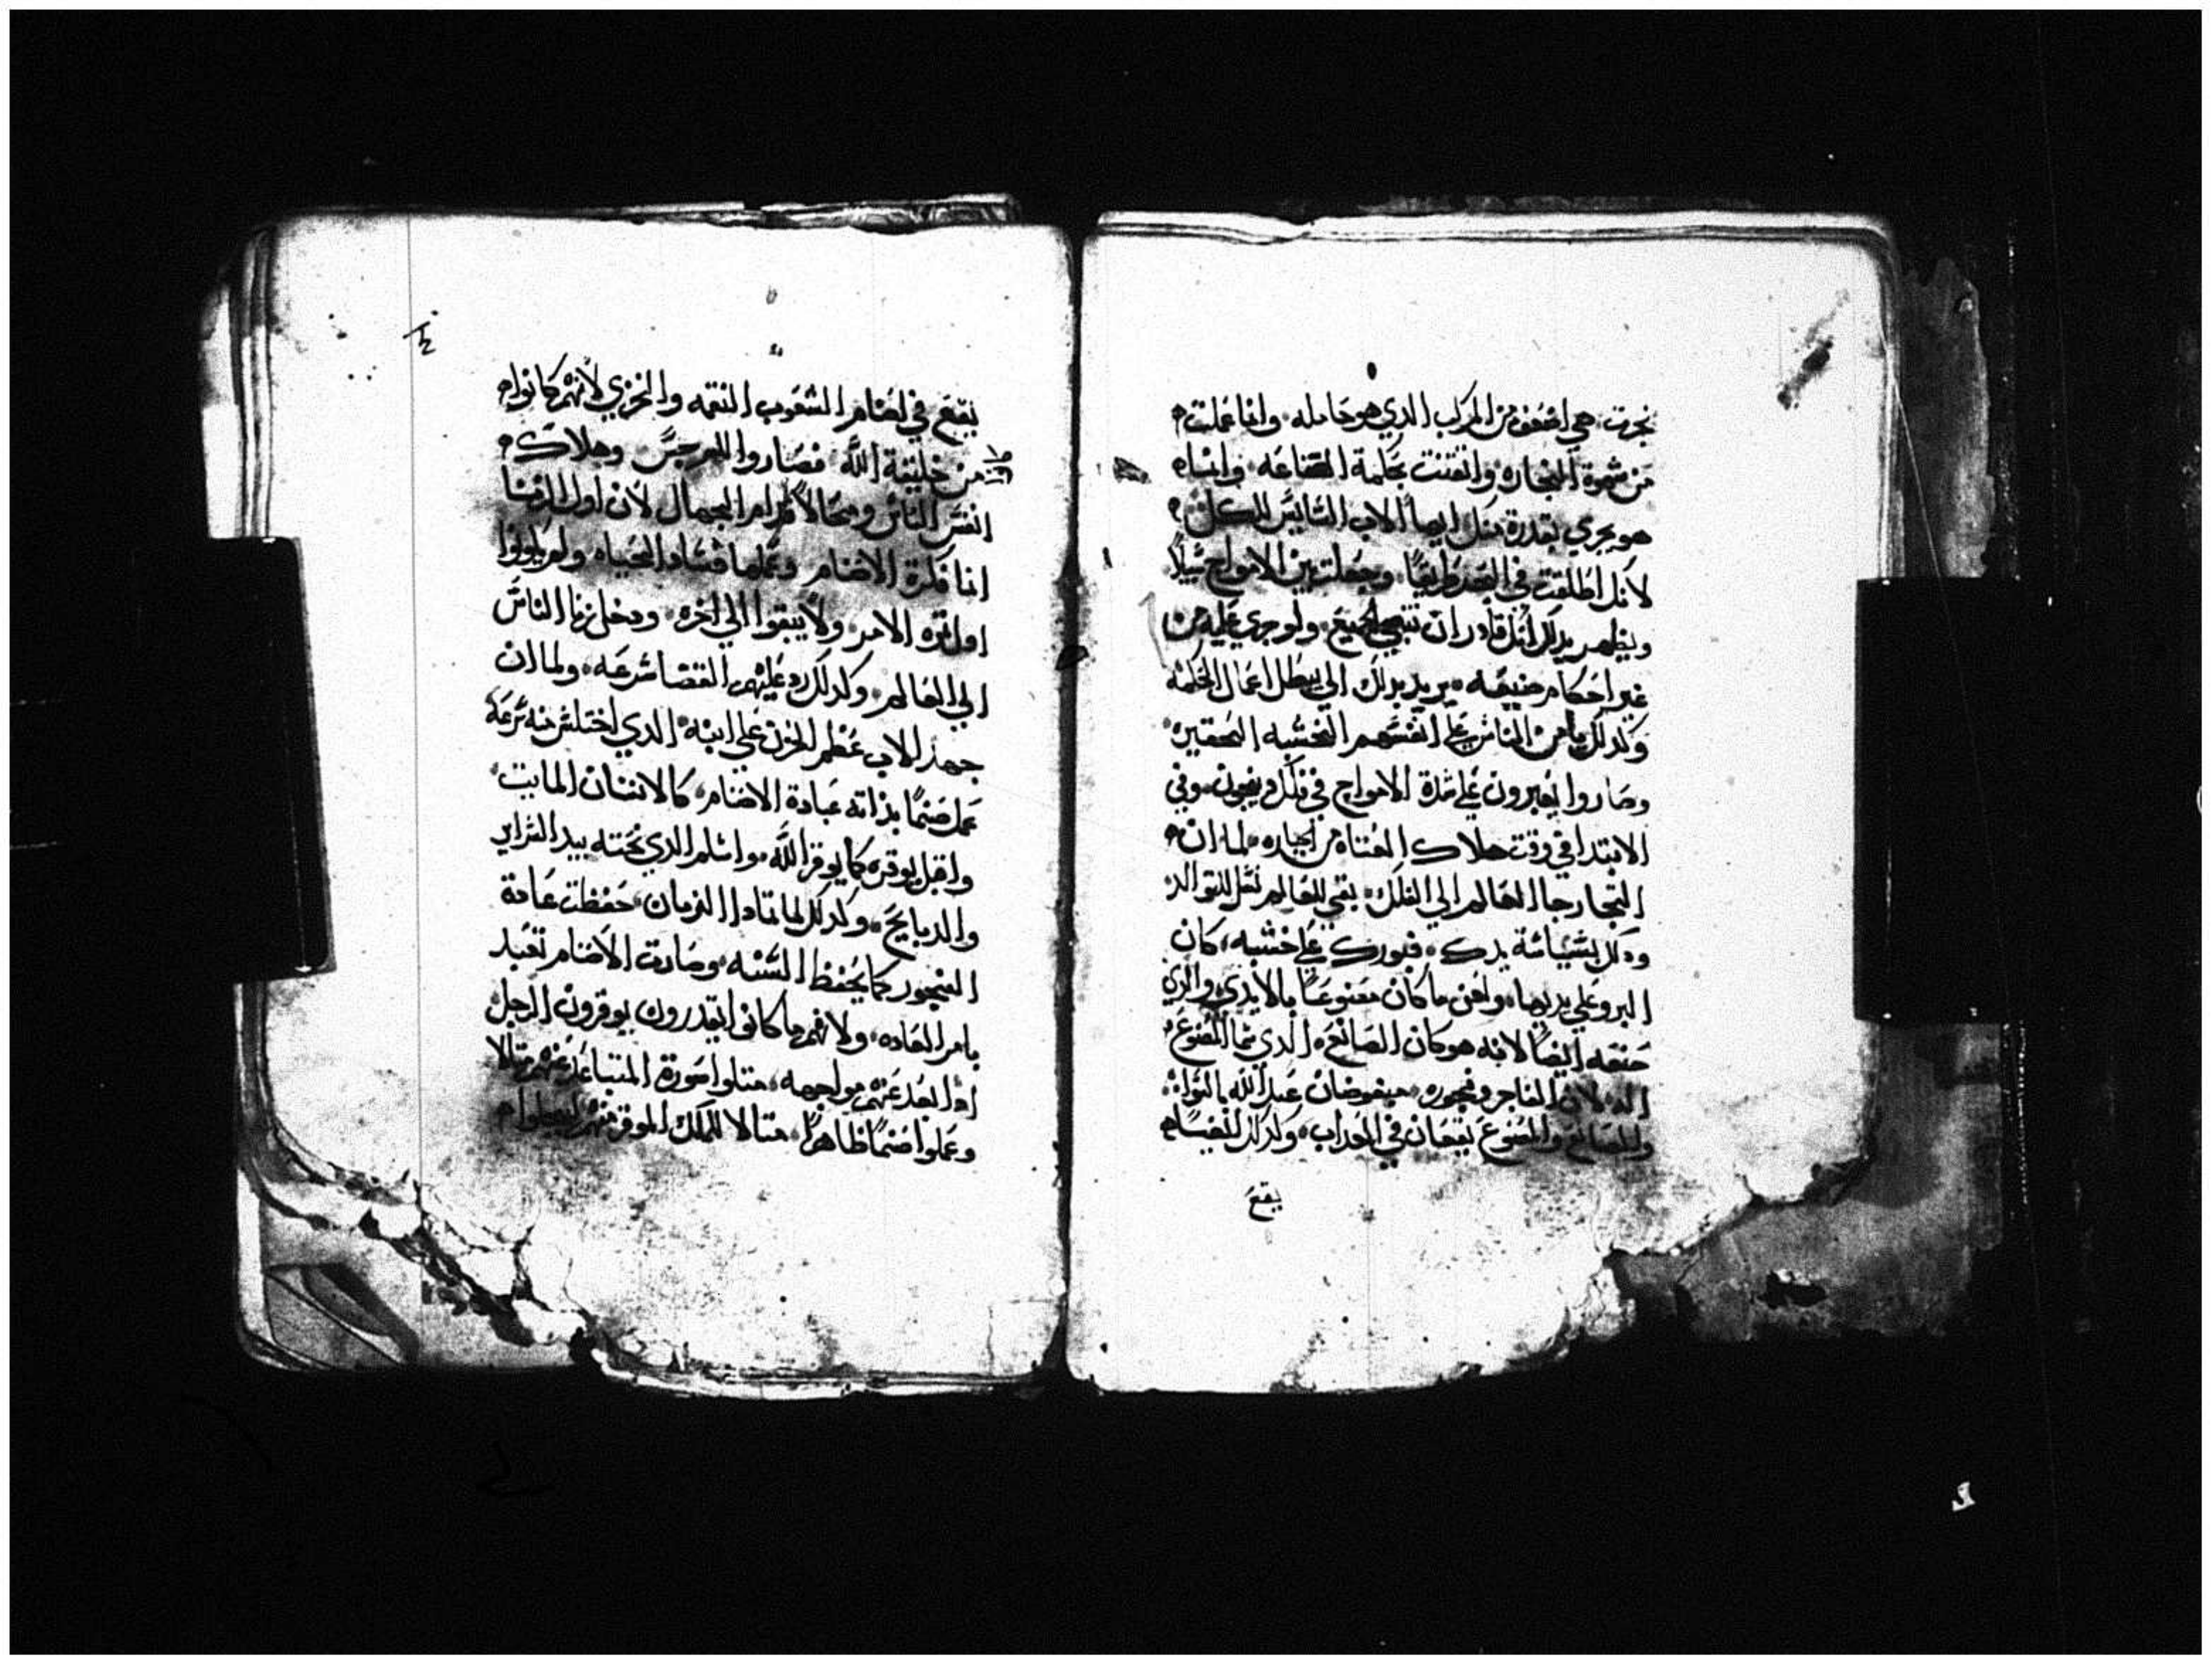 نجرت هي اضعف من المركب الدي هو حامله وانما عملت
من شهوة التجاره واتقنت بحكمة الصناعه وانما
هو يجري بقدرة منك ايها الاب السايس للكل
لانك اطلقت في البحر طريقًا وجعلت بين الامواج سُبلاً
ويظهر بدلك انك قادر ان تنجي الجميع ولو جري عليه من
غير احكام صنيعه يريد بدلك الي يبطل اعمال الحكمه
وكدلك يامن الناس علي انفسهم الخشبه الحقيره
وصاروا يعبرون علي شدة الامواج في فلك وينجون وفي
الابتدا في وقت هلاك العتاه من الجبابره لما ان
التجا رجا العالم الي الفلك بقي للعالم نسل للتوالد
ودلك بسياسة يدك فبورك علي خشبه كان
البر علي يديها ولعن ما كان مصنوعًا بالايدي والدي
صنعه ايضًا لانه هو كان الصانع الدي سما المصنوع
اله لان الفاجر وفجوره مبغوضان عند الله بالسوا
والصانع والمصنوع يقعان في العداب وكدلك ايضًا
يقع
يقع في اصنام الشعوب النقمه والخزي لانهم كانوا
من خليقة الله فصاروا للرجس وهلاك
انفس الناس وفخًا لاقدام الجهال لان اول الزنا
انما فكرة الاصنام وعملها فساد الحياه ولم يكونوا
اول الامر ولا يبقوا الي اخره ودخل زنا الناس
الي العالم وكدلك رد عليهم القضا سرعه ولما ان
جهد الاب عظم الحزن علي ابنه الدي اختلس منه سرعه
عمل صنمًا بداته عبادة الاصنام كالانسان المايت
واقبل يوقره كما يوقر الله واسلم الدي تحته بيد السراير
والدبايح وكدلك لما تمادا الزمان حفظت عادة
الفجور كما يحفظ السنه وصارت الاصنام تعبد
بامر العاده ولانهم ما كانوا يقدرون يوقرون الرجل
ادا بعد عنهم مواجهه متلوا صورة المتباعد عنهم متالا
وعملوا صنمًا ظاهرًا متالا للملك الموقر منهم ليعظوا